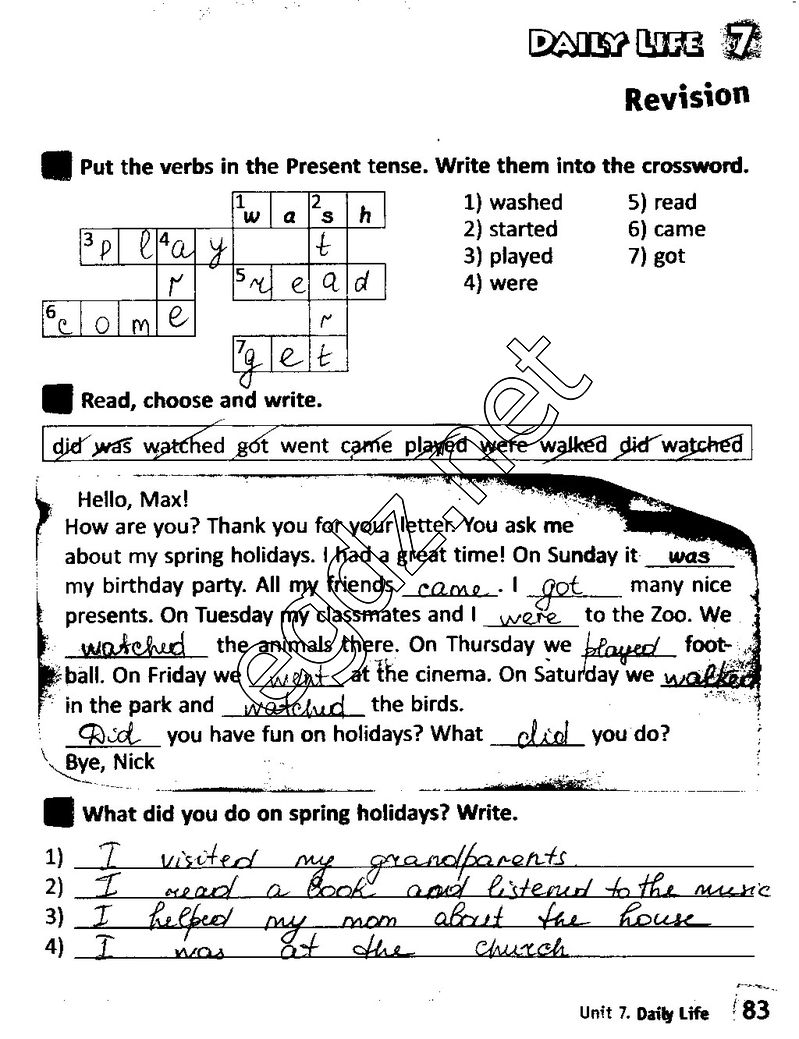 DAILY LIFE 7
Revision
Put the verbs in the Present tense. Write them into the crossword.
1 w a 2 s h
3 p l 4 a y t
r 5 r e a d
6 c o m e r
7 g e t
1) washed 5) read
2) started 6) came
3) played 7) got
4) were
Read, choose and write.
did was watched got went came played were walked did watched
Hello, Max!
How are you? Thank you for your letter. You ask me
about my spring holidays. I had a great time! On Sunday it was
my birthday party. All my friends came. I got many nice
presents. On Tuesday my classmates and I were to the Zoo. We
watched the animals there. On Thursday we played foot-
ball. On Friday we went at the cinema. On Saturday we walked
in the park and watched the birds.
Did you have fun on holidays? What did you do?
Bye, Nick
What did you do on spring holidays? Write.
1) I visited my grandparents.
2) I read a book and listened to the music
3) I helped my mom about the house
4) I was at the church
Unit 7. Daily Life 83
egdz.net